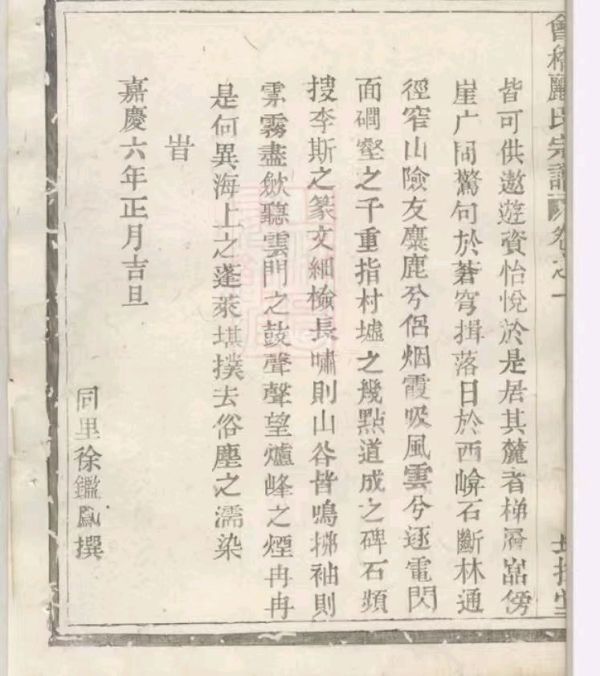 會稽酈氏宗譜 卷之一
皆可供遨遊資怡悅於是居其麓者梯層嵓傍
崖广問驚句於蒼穹揖落日於西崦石斷林通
徑窄山險友麋鹿兮侶烟霞吸風雲兮逐電閃
面磵壑之千重指村墟之幾點道成之碑石頻
捜李斯之篆文細檢長嘯則山谷皆鳴拂袖則
雲霧盡斂聽雲門之鼓聲聲望爐峰之煙冉冉
是何異海上之蓬萊堪撲去俗塵之濡染
旹
嘉慶六年正月吉旦
同里徐鑑鳳撰